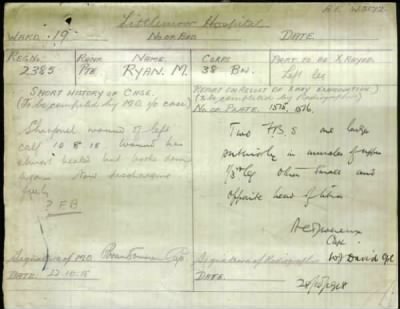 Littlemoor Hospital
WARD. 19. No OF BED. DATE.
REG No. RANK NAME. CORPS PART TO BE X RAYED.
2385 PTE RYAN. M. 38 BN. Left leg
SHORT HISTORY OF CASE.
(To be completed by M.O. i/c case)
Shrapnel wound of left
calf 10.8.18 Wound has
almost healed but broke down
again. Now discharging
freely
? F B
REPORT ON RESULT OF X RAY EXAMINATION
(To be completed by Radiographer)
No. OF PLATE. 1575, 1576.
Two F.B.s one large
in muscles of upper
1/3 leg other small and
opposite head of
Signature of M.O. Cap.
DATE. 22.10.18
Signature of Radiographer
Cap
DATE. 28/10/1918